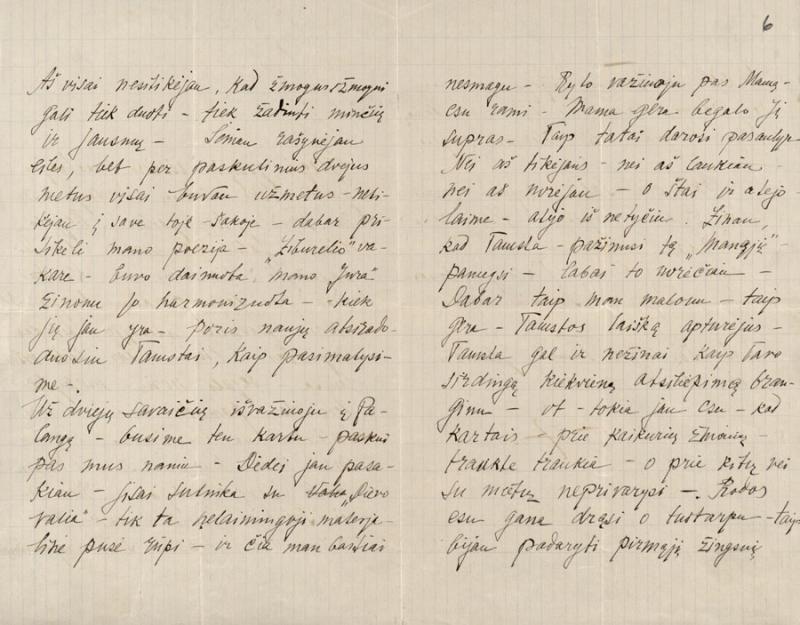 6
Aš visai nesitikėjau, kad žmogus žmogui
gali tiek duoti – tiek žadinti minčių
ir jausmų – Seniau rašynėjau
eiles, bet per paskutinius dvejus
metus visai buvau užmetus – neti-
kėjau į save toje šakoje – dabar pri-
sikėli mano poezija – „Žiburėlio" va-
kare – buvo dainuota mano „Jūra"
žinomu jo harmonizuota – kiek
jų jau yra – poris naujų atsirado –
duosiu Tamstai, kaip pasimatysi-
me –.
Už dviejų savaičių išvažiuoju į Pa-
langą – busime ten kartu – paskui
pas mus namie – Dėdei jau pasa-
kiau – jisai sutinka su „Dievo
valia" – tik ta nelaimingoji materja-
linė pusė rūpi – ir čia man baisiai
nesmagu – Ryto važiuoju pas Mamą
esu rami – Mama gera begalo Ją
supras – Taip tatai darosi pasaulyje
Nei aš tikėjaus – nei aš laukiau –
nei aš norėjau – o štai ir atėjo
laimė – atėjo iš netyčių. Žinau,
kad Tamsta – pažinusi tą „Manąjį" –
pamėgsi – labai to norėčiau –
Dabar taip man malonu – taip
gera – Tamstos laišką apturėjus –
Tamsta gal ir nežinai kaip Tavo
širdingą kiekvieną atsiliepimą bran-
ginu – ot – tokia jau esu – kad
kartais – prie kaikurių žmonių –
traukte traukia – o prie kitų nei
su mėtų neprivarysi –. Rodos
esu gana drąsi o tuotarpu – taip
bijau padaryti pirmąjį žingsnį